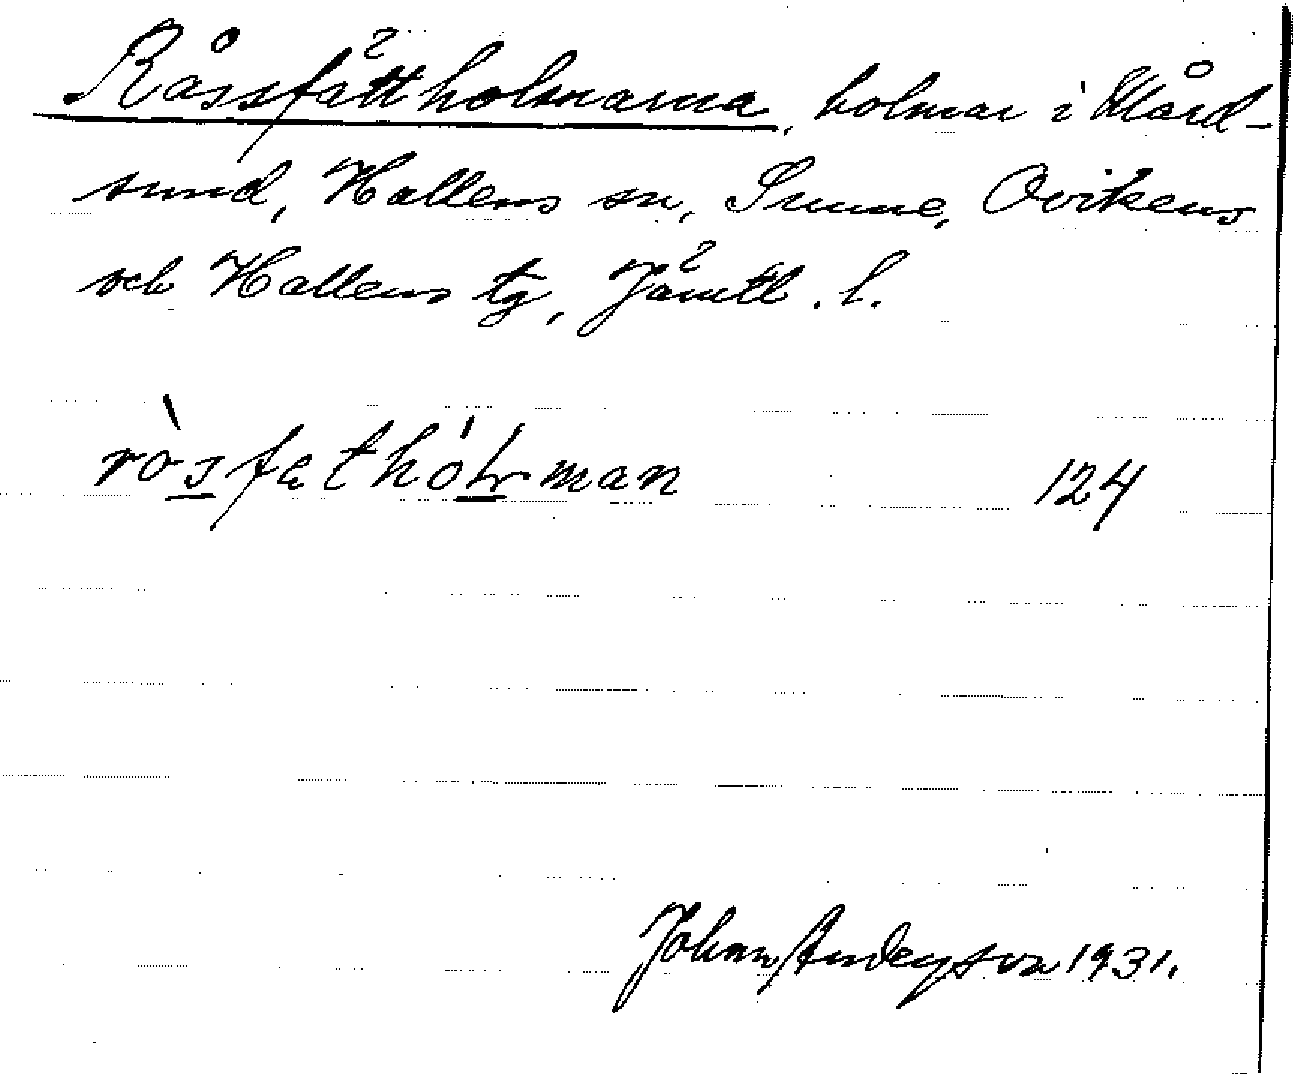 Råssfättholmarna, holmar i Mård-
sund, Hallens sn, Sunne, Ovikens
och Hallens tg, Jämtl. l.
124
Johan Anderson 1931.